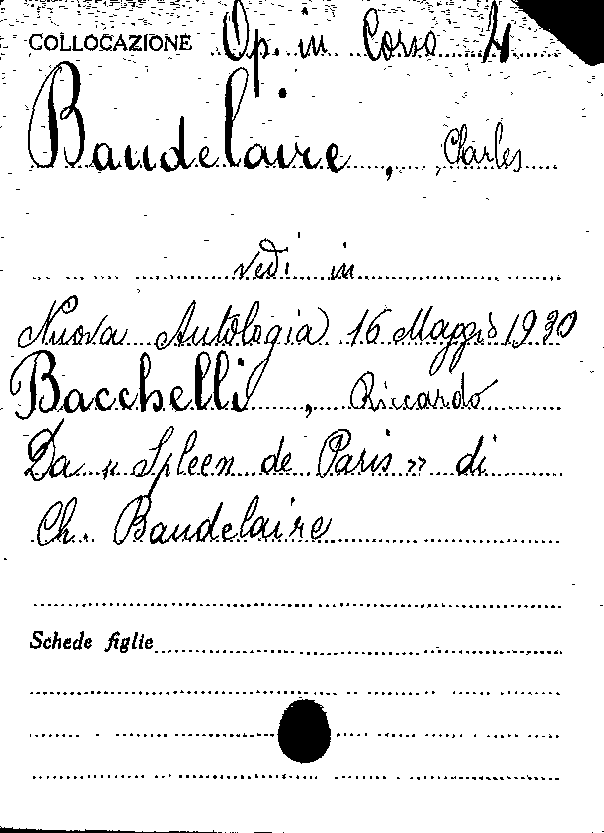 COLLOCAZIONE Op. in Corso 4
Baudelaire, Charles
vedi in
Nuova Antologia 16 Maggio 1930
Bacchelli, Riccardo
Da « Spleen de Paris » di
Ch. Baudelaire
Schede figlie